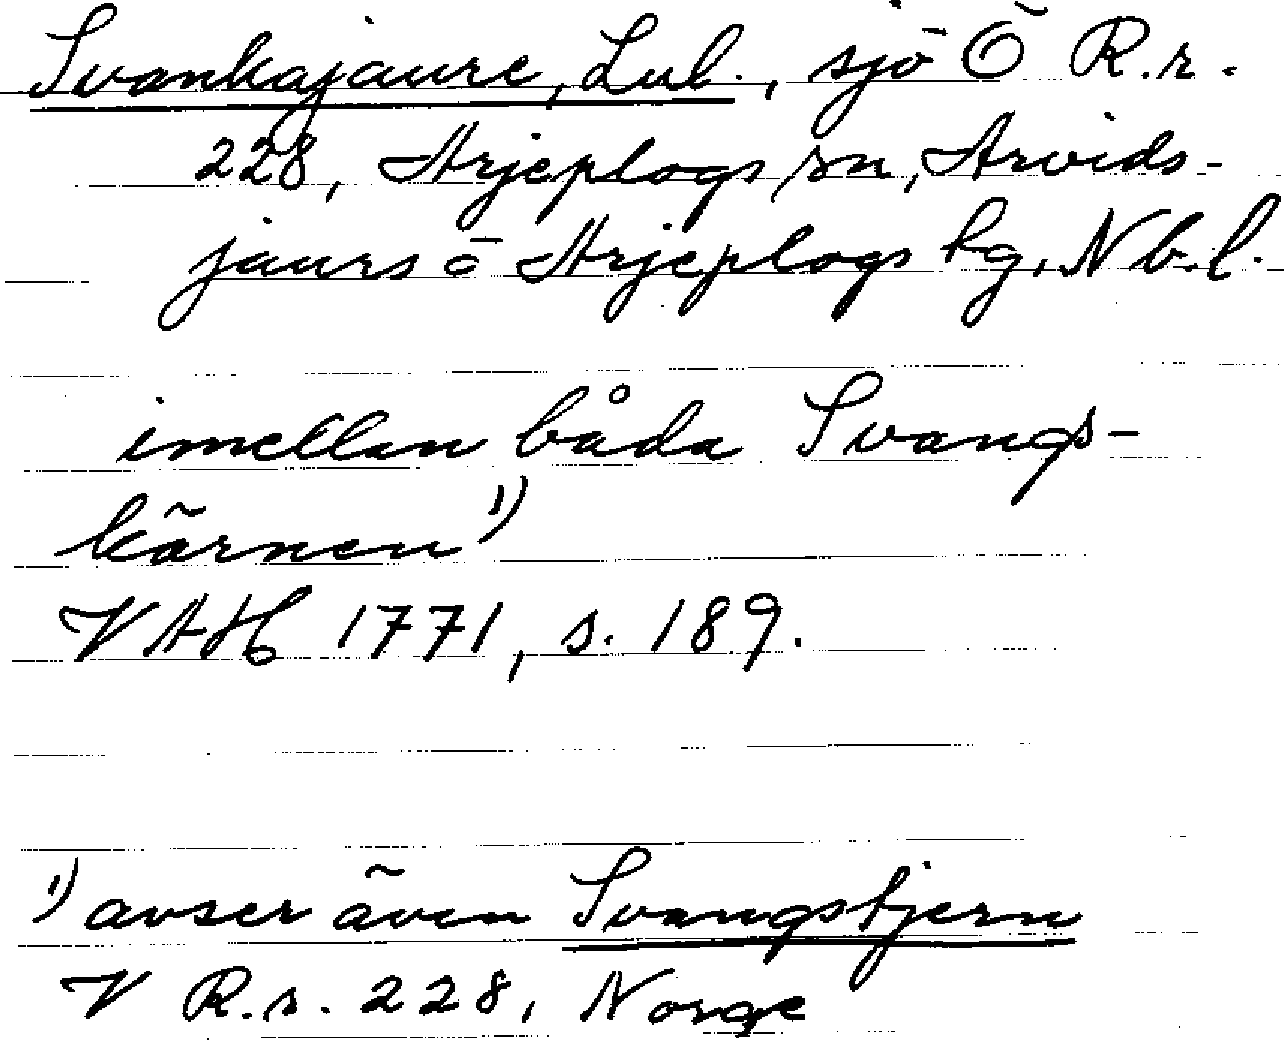 Svankajaure, Lul., sjö Ö R.r.
228, Arjeplogs sn, Arvids-
jaurs o Arjeplogs lg, Nb.l.
imellan båda Svangs-
kärnen 1)
VAH 1771, s. 189.
1) avser även Svangstjern
V R.r. 228, Norge